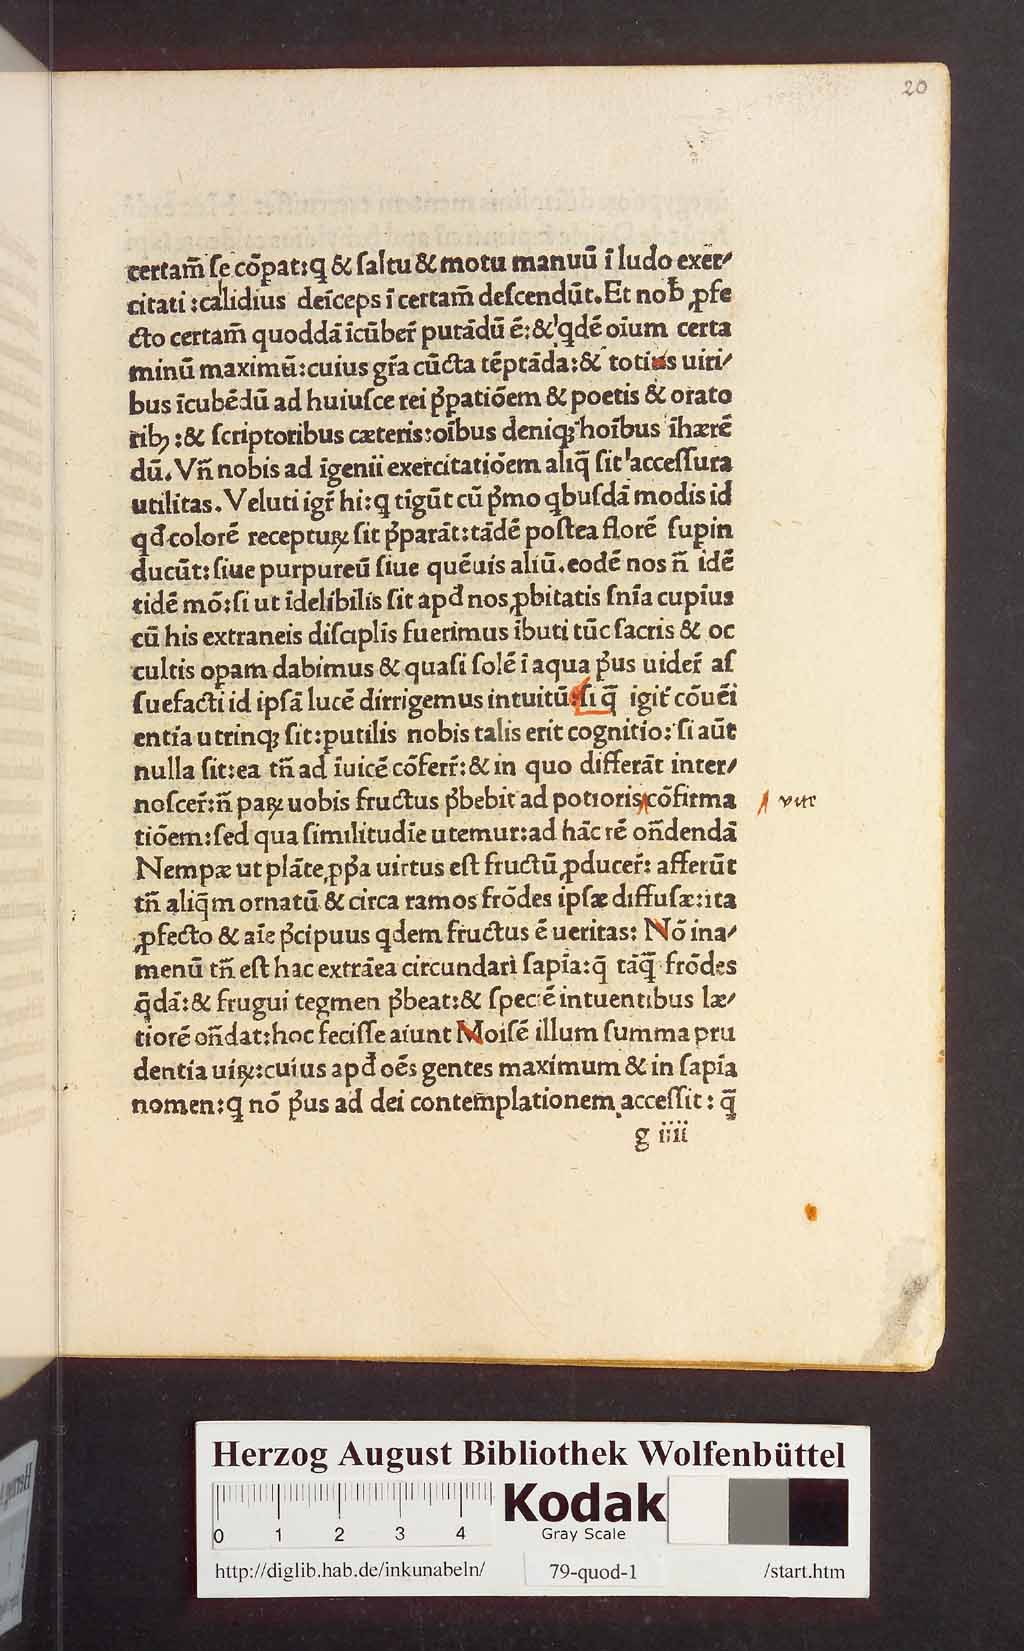 20
certam̄ ſe cōpat:q & ſaltu & motu manuū ī ludo exer̄/
citati :calidius deīceps ī certam̄ deſcendūt. Et nob̄ ꝓfe
cto certam̄ quoddā īcūber̄ putādū ē:& qdē oīum certa
minū maximū:cuius gr̄a cūcta tēptāda:& totius uiri/
bus īcubēdū ad huiuſce rei p̄patiōem & poetis & orato
ribꝫ:& ſcriptoribus cæteris:oībus deniqꝫ hoībus īhærē
dū. Vn̄ nobis ad īgenii exercitatiōem aliq̄ ſit acceſſura
utilitas. Veluti igr̄ hi:q tigūt cū p̄mo qbuſdā modis id
qd̄ colorē recepturꝝ ſit p̄parāt:tādē poſtea florē ſupin
ducūt: ſiue purpureū ſiue quēuis aliū.eodē nos n̄ idē
tidē mō:ſi ut īdelibilis ſit apd̄ nos ꝓbitatis ſnīa cupīus
cū his extraneis diſciplis fuerimus ībuti tūc ſacris & oc
cultis opam dabimus & quaſi ſolē ī aqua p̄us uider̄ aſ
ſuefacti id ipſā lucē dirrigemus intuitū:ſi q̄ igit̄ cōuēi
entia utrinqꝫ ſit:putilis nobis talis erit cognitio: ſi aūt
nulla ſit:ea tn̄ ad īuicē cōferr̄:& in quo differāt inter/
noſcer̄:n̄ paꝝ uobis fructus p̄bebit ad potioris cōfirma
vite
tiōem:ſed qua ſimilitudīe utemur:ad hāc rē on̄dendā
Nempæ ut plāte ꝓp̄a uirtus eſt fructū ꝓducer̄: afferūt
tn̄ aliq̄m ornatū & circa ramos frōdes ipſæ diffuſæ:ita
ꝓfecto & aīe p̄cipuus qdem fructus ē ueritas: Nō ina/
menū tn̄ eſt hac extrāea circundari ſapīa:q̄ tāq̄ frōdes
q̄dā:& frugui tegmen p̄beat:& ſpeciē intuentibus læ/
tiorē on̄dat:hoc feciſſe aiunt Moiſē illum ſumma pru
dentia uiꝝ:cuius apd̄ oēs gentes maximum & in ſapīa
nomen:q nō p̄us ad dei contem̄plationem acceſſit: q̄
g iiii
Herzog August Bibliothek Wolfenbüttel
0 1 2 3 4
Kodak
Gray Scale
http://diglib.hab.de/inkunabeln/ 79-quod-1 /start.htm